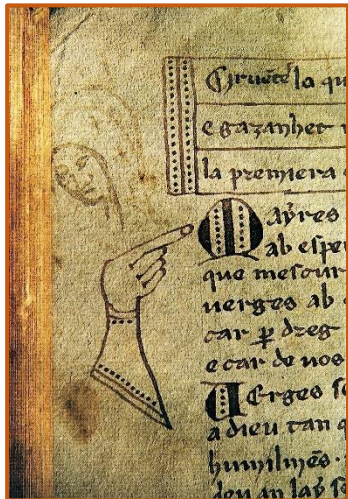 la qu
e gazanhet
la premiera
Mayres
ab esper
que mescur
uerges ab
car ꝑ dzeg
e car de uos
Uerges
a dieu tan
humilmẽs